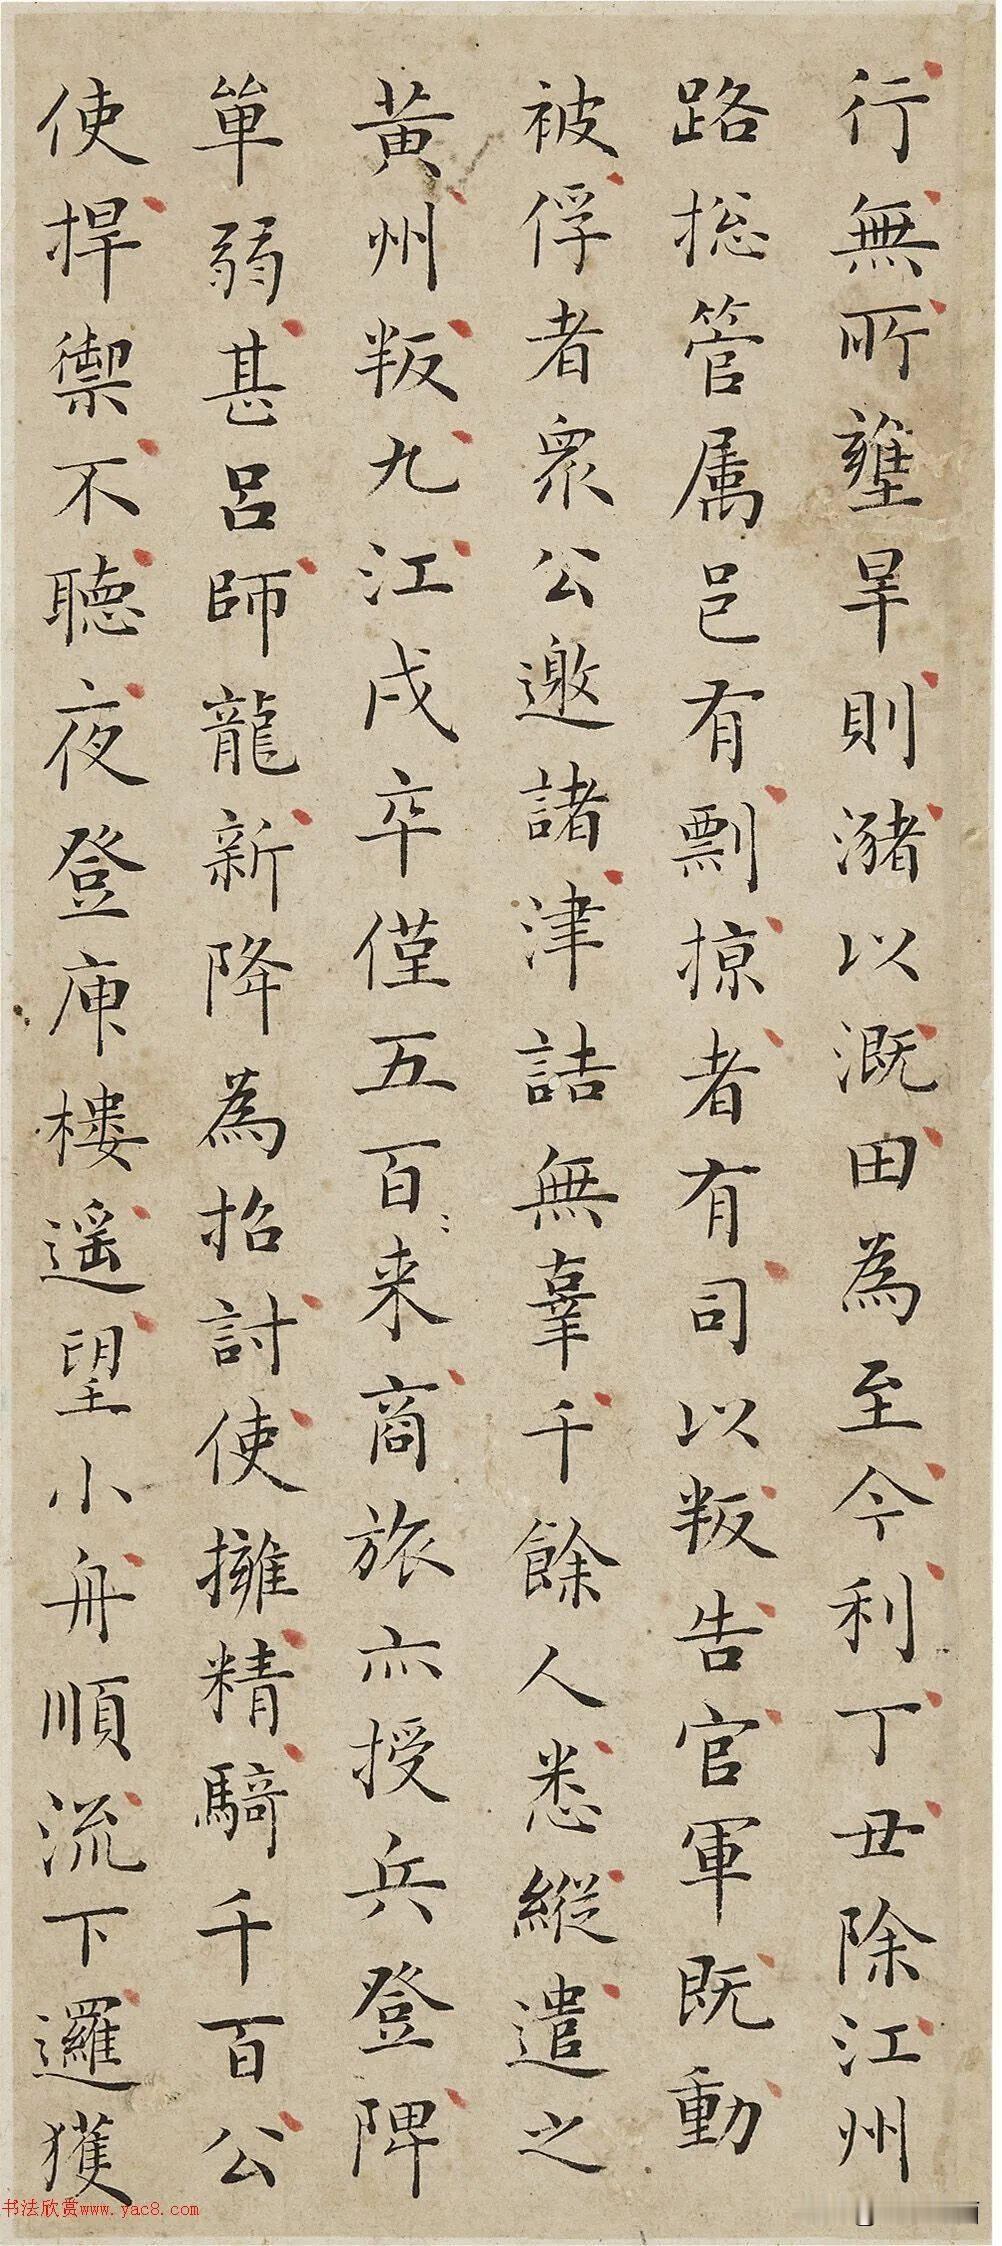 行無所壅旱則瀦以溉田為至今利丁丑除江州
路捴管属邑有剽掠者有司以叛告官軍既動
被俘者衆公邀諸津詰無辜千餘人悉縱遣之
黃州叛九江戍卒僅五百来商旅亦授兵登陴
單弱甚呂師龍新降為招討使擁精騎千百公
使捍禦不聽夜登庾樓遥望小舟順流下邏獲
书法欣赏www.yac8.com